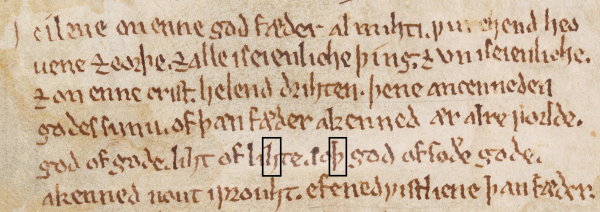 eilene on enne god fæder almihti. þurchend heo
uene ⁊ eorþe. ⁊ alle iseienliche þing. ⁊ vniseienliche.
⁊ on enne crist. helend drihten. þene ancenneden
godes sunu. of þan fæder akenned ær alre ƿorlde.
god of gode. liht of lihte. soþ god of soðe gode.
akenned nout iƿrouht. efenedƿistliene þan fæder.